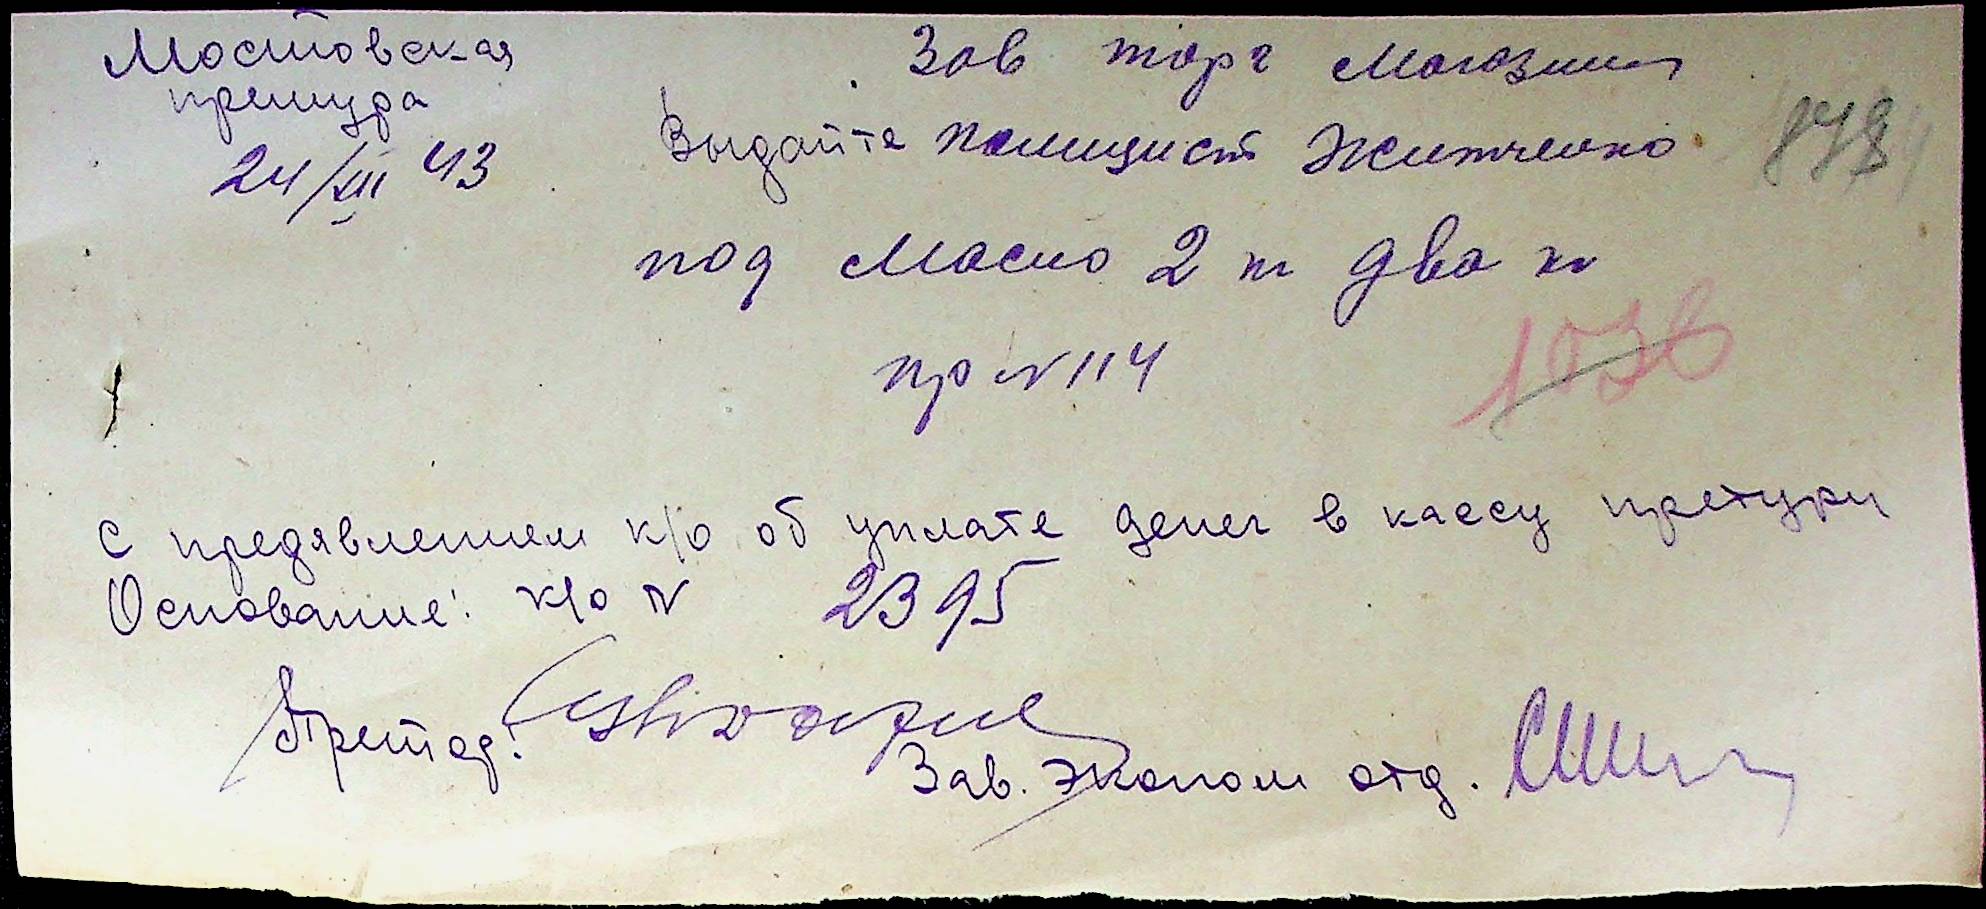 Мостовская
претура
24/XII 43
Зав торг Магазин
Выдайте полицист Житченко
под Масло 2 кг два кг
пр N 114
с предявлением к/о об уплате денег в кассу претури
Основание: к/о N 2395
Претор:
Зав. эконом отд.